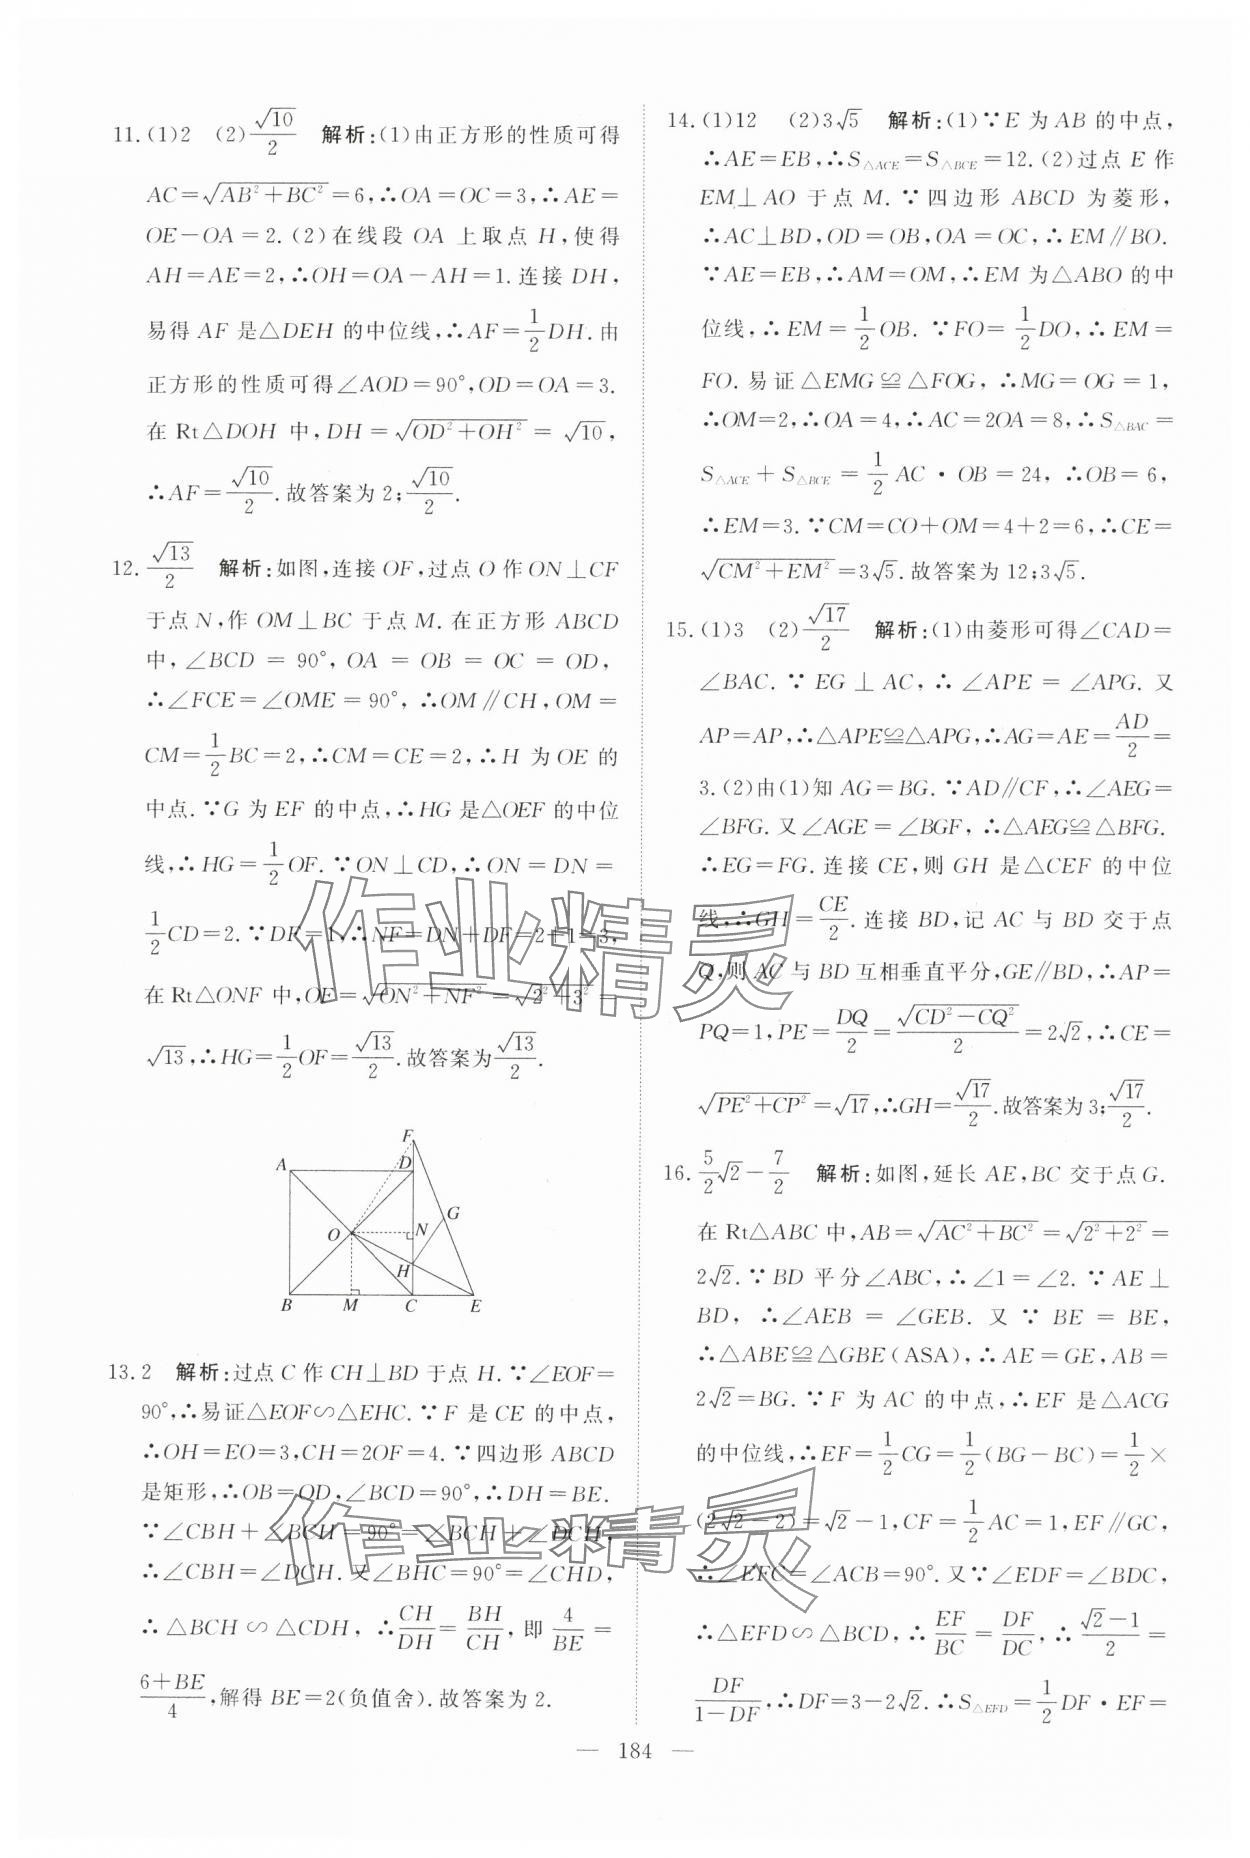 11.(1)2 (2)√10/2 解析:(1)由正方形的性质可得
AC=√(AB²+BC²)=6,∴OA=OC=3,∴AE=
OE-OA=2.(2)在线段 OA 上取点 H,使得
AH=AE=2,∴OH=OA-AH=1.连接 DH,
易得 AF 是△DEH 的中位线,∴AF=1/2DH.由
正方形的性质可得∠AOD=90°,OD=OA=3.
在 Rt△DOH 中,DH=√(OD²+OH²)=√10,
∴AF=√10/2.故答案为2;√10/2.
12.√13/2 解析:如图,连接 OF,过点 O 作 ON⊥CF
于点 N,作 OM⊥BC 于点 M.在正方形 ABCD
中,∠BCD=90°,OA=OB=OC=OD,
∴∠FCE=∠OME=90°,∴OM∥CH,OM=
CM=1/2BC=2,∴CM=CE=2,∴H 为 OE 的
中点.∵G 为 EF 的中点,∴HG 是△OEF 的中位
线,∴HG=1/2OF.∵ON⊥CD,∴ON=DN=
1/2CD=2.∵DF=1,∴NF=DN+DF=2+1=3,
在 Rt△ONF 中,OF=√(ON²+NF²)=√(2²+3²)=
√13,∴HG=1/2OF=√13/2.故答案为√13/2.
F
A D
G
O N
H
B M C E
13.2 解析:过点 C 作 CH⊥BD 于点 H.∵∠EOF=
90°,∴易证△EOF∽△EHC.∵F 是 CE 的中点,
∴OH=EO=3,CH=2OF=4.∵四边形 ABCD
是矩形,∴OB=OD,∠BCD=90°,∴DH=BE.
∵∠CBH+∠BCH=90°=∠BCH+∠DCH,
∴∠CBH=∠DCH.又∠BHC=90°=∠CHD,
∴△BCH∽△CDH,∴CH/DH=BH/CH,即4/BE=
(6+BE)/4,解得 BE=2(负值舍).故答案为2.
14.(1)12 (2)3√5 解析:(1)∵E 为 AB 的中点,
∴AE=EB,∴S△ACE=S△BCE=12.(2)过点 E 作
EM⊥AO 于点 M.∵四边形 ABCD 为菱形,
∴AC⊥BD,OD=OB,OA=OC,∴EM∥BO.
∵AE=EB,∴AM=OM,∴EM 为△ABO 的中
位线,∴EM=1/2OB.∵FO=1/2DO,∴EM=
FO.易证△EMG≌△FOG,∴MG=OG=1,
∴OM=2,∴OA=4,∴AC=2OA=8,∴S△BAC=
S△ACE+S△BCE=1/2AC·OB=24,∴OB=6,
∴EM=3.∵CM=CO+OM=4+2=6,∴CE=
√(CM²+EM²)=3√5.故答案为12;3√5.
15.(1)3 (2)√17/2 解析:(1)由菱形可得∠CAD=
∠BAC.∵EG⊥AC,∴∠APE=∠APG.又
AP=AP,∴△APE≌△APG,∴AG=AE=AD/2=
3.(2)由(1)知 AG=BG.∵AD∥CF,∴∠AEG=
∠BFG.又∠AGE=∠BGF,∴△AEG≌△BFG.
∴EG=FG.连接 CE,则 GH 是△CEF 的中位
线,∴GH=CE/2.连接 BD,记 AC 与 BD 交于点
Q,则 AC 与 BD 互相垂直平分,GE∥BD,∴AP=
PQ=1,PE=DQ/2=√(CD²-CQ²)/2=2√2,∴CE=
√(PE²+CP²)=√17,∴GH=√17/2.故答案为3;√17/2.
16.5/2√2-7/2 解析:如图,延长 AE,BC 交于点 G.
在 Rt△ABC 中,AB=√(AC²+BC²)=√(2²+2²)=
2√2.∵BD 平分∠ABC,∴∠1=∠2.∵AE⊥
BD,∴∠AEB=∠GEB.又∵BE=BE,
∴△ABE≌△GBE(ASA),∴AE=GE,AB=
2√2=BG.∵F 为 AC 的中点,∴EF 是△ACG
的中位线,∴EF=1/2CG=1/2(BG-BC)=1/2×
(2√2-2)=√2-1,CF=1/2AC=1,EF∥GC,
∴∠EFC=∠ACB=90°.又∵∠EDF=∠BDC,
∴△EFD∽△BCD,∴EF/BC=DF/DC,∴(√2-1)/2=
DF/(1-DF),∴DF=3-2√2.∴S△EFD=1/2DF·EF=
— 184 —
作业精灵
作业精灵